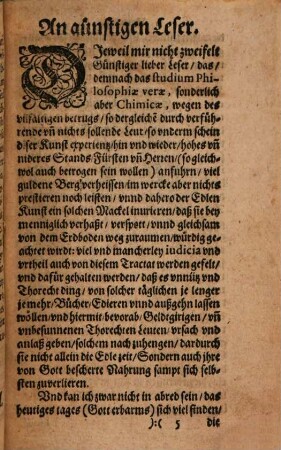 An günstigen Leser.
DJeweil mir nicht zweifelt
Günstiger lieber Leser/das/
demnach das studium Phi-
losophiæ veræ, sonderlich
aber Chimicæ, wegen des
vilfaltigen betrugs/so dergleichē durch verfüh-
rende vn̄ nichts sollende Leut/so vnderm schein
diser Kunst experientz/hin vnd wieder/hohes vn̄
nideres Stands/Fürsten vn̄ Herren/(so gleich-
wol auch betrogen sein wollen) anfuhrn/viel
guldene Berg verheissen/im wercke aber nichts
prestieren noch leisten/vnnd dahero der Edlen
Kunst ein solchen Mackel inurieren/daß sie bey
menniglich verhaßt/verspott/vnnd gleichsam
von dem Erdboden weg zuraumen/würdig ge-
achtet wirdt: viel vnd mancherley iudicia vnd
vrtheil auch von diesem Tractat werden gefelt/
vnd dafür gehalten werden/daß es vnnütz vnd
Thorecht ding/von solcher täglichen je lenger
je mehr/Bücher/Edieren vnnd außgehn lassen
wöllen/vnd hiermit bevorab/Geldtgirigen/vn̄
vnbesunnenen Thorechten Leuten/vrsach vnd
anlaß geben/solchem nachzuhengen/dardurch
sie nicht allein die Edle zeit/Sondern auch jhre
von Gott bescherte Nahrung sampt sich selb-
sten zuverlieren.
Vnd kan ich zwar nicht in abred sein/das
heutiges tages (Gott erbarms) sich viel finden/
):( 5 die